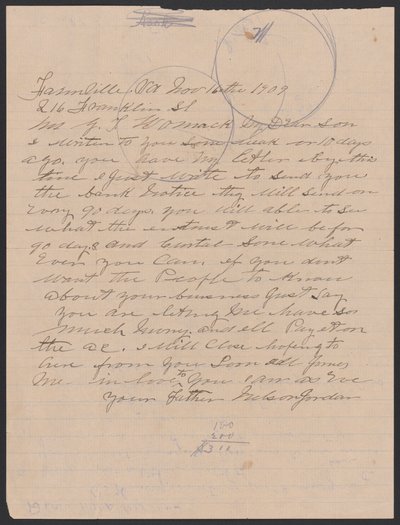 Farmville Va Nov 16the 1909
216 Franklin St
Mr G. T Womack My Dear Son
I writen to you some weak or 10 days
ago. you have my letter by this
time I Just write to send you
the bank notice they Will send on
Evry 90 days. you Will able to see
What the intrust Will be for
90 days and Curtail Some What
Ever you Can, if you don't
Want the People to Know
about your business Just Say
you are letting me have So
much money. and Ill Pay it on
the ac. I Will Close hoping to
hear from you Soon all Joines
me in love to you I am as Eve
your Father Nelson Jordan
180
300
$3 10